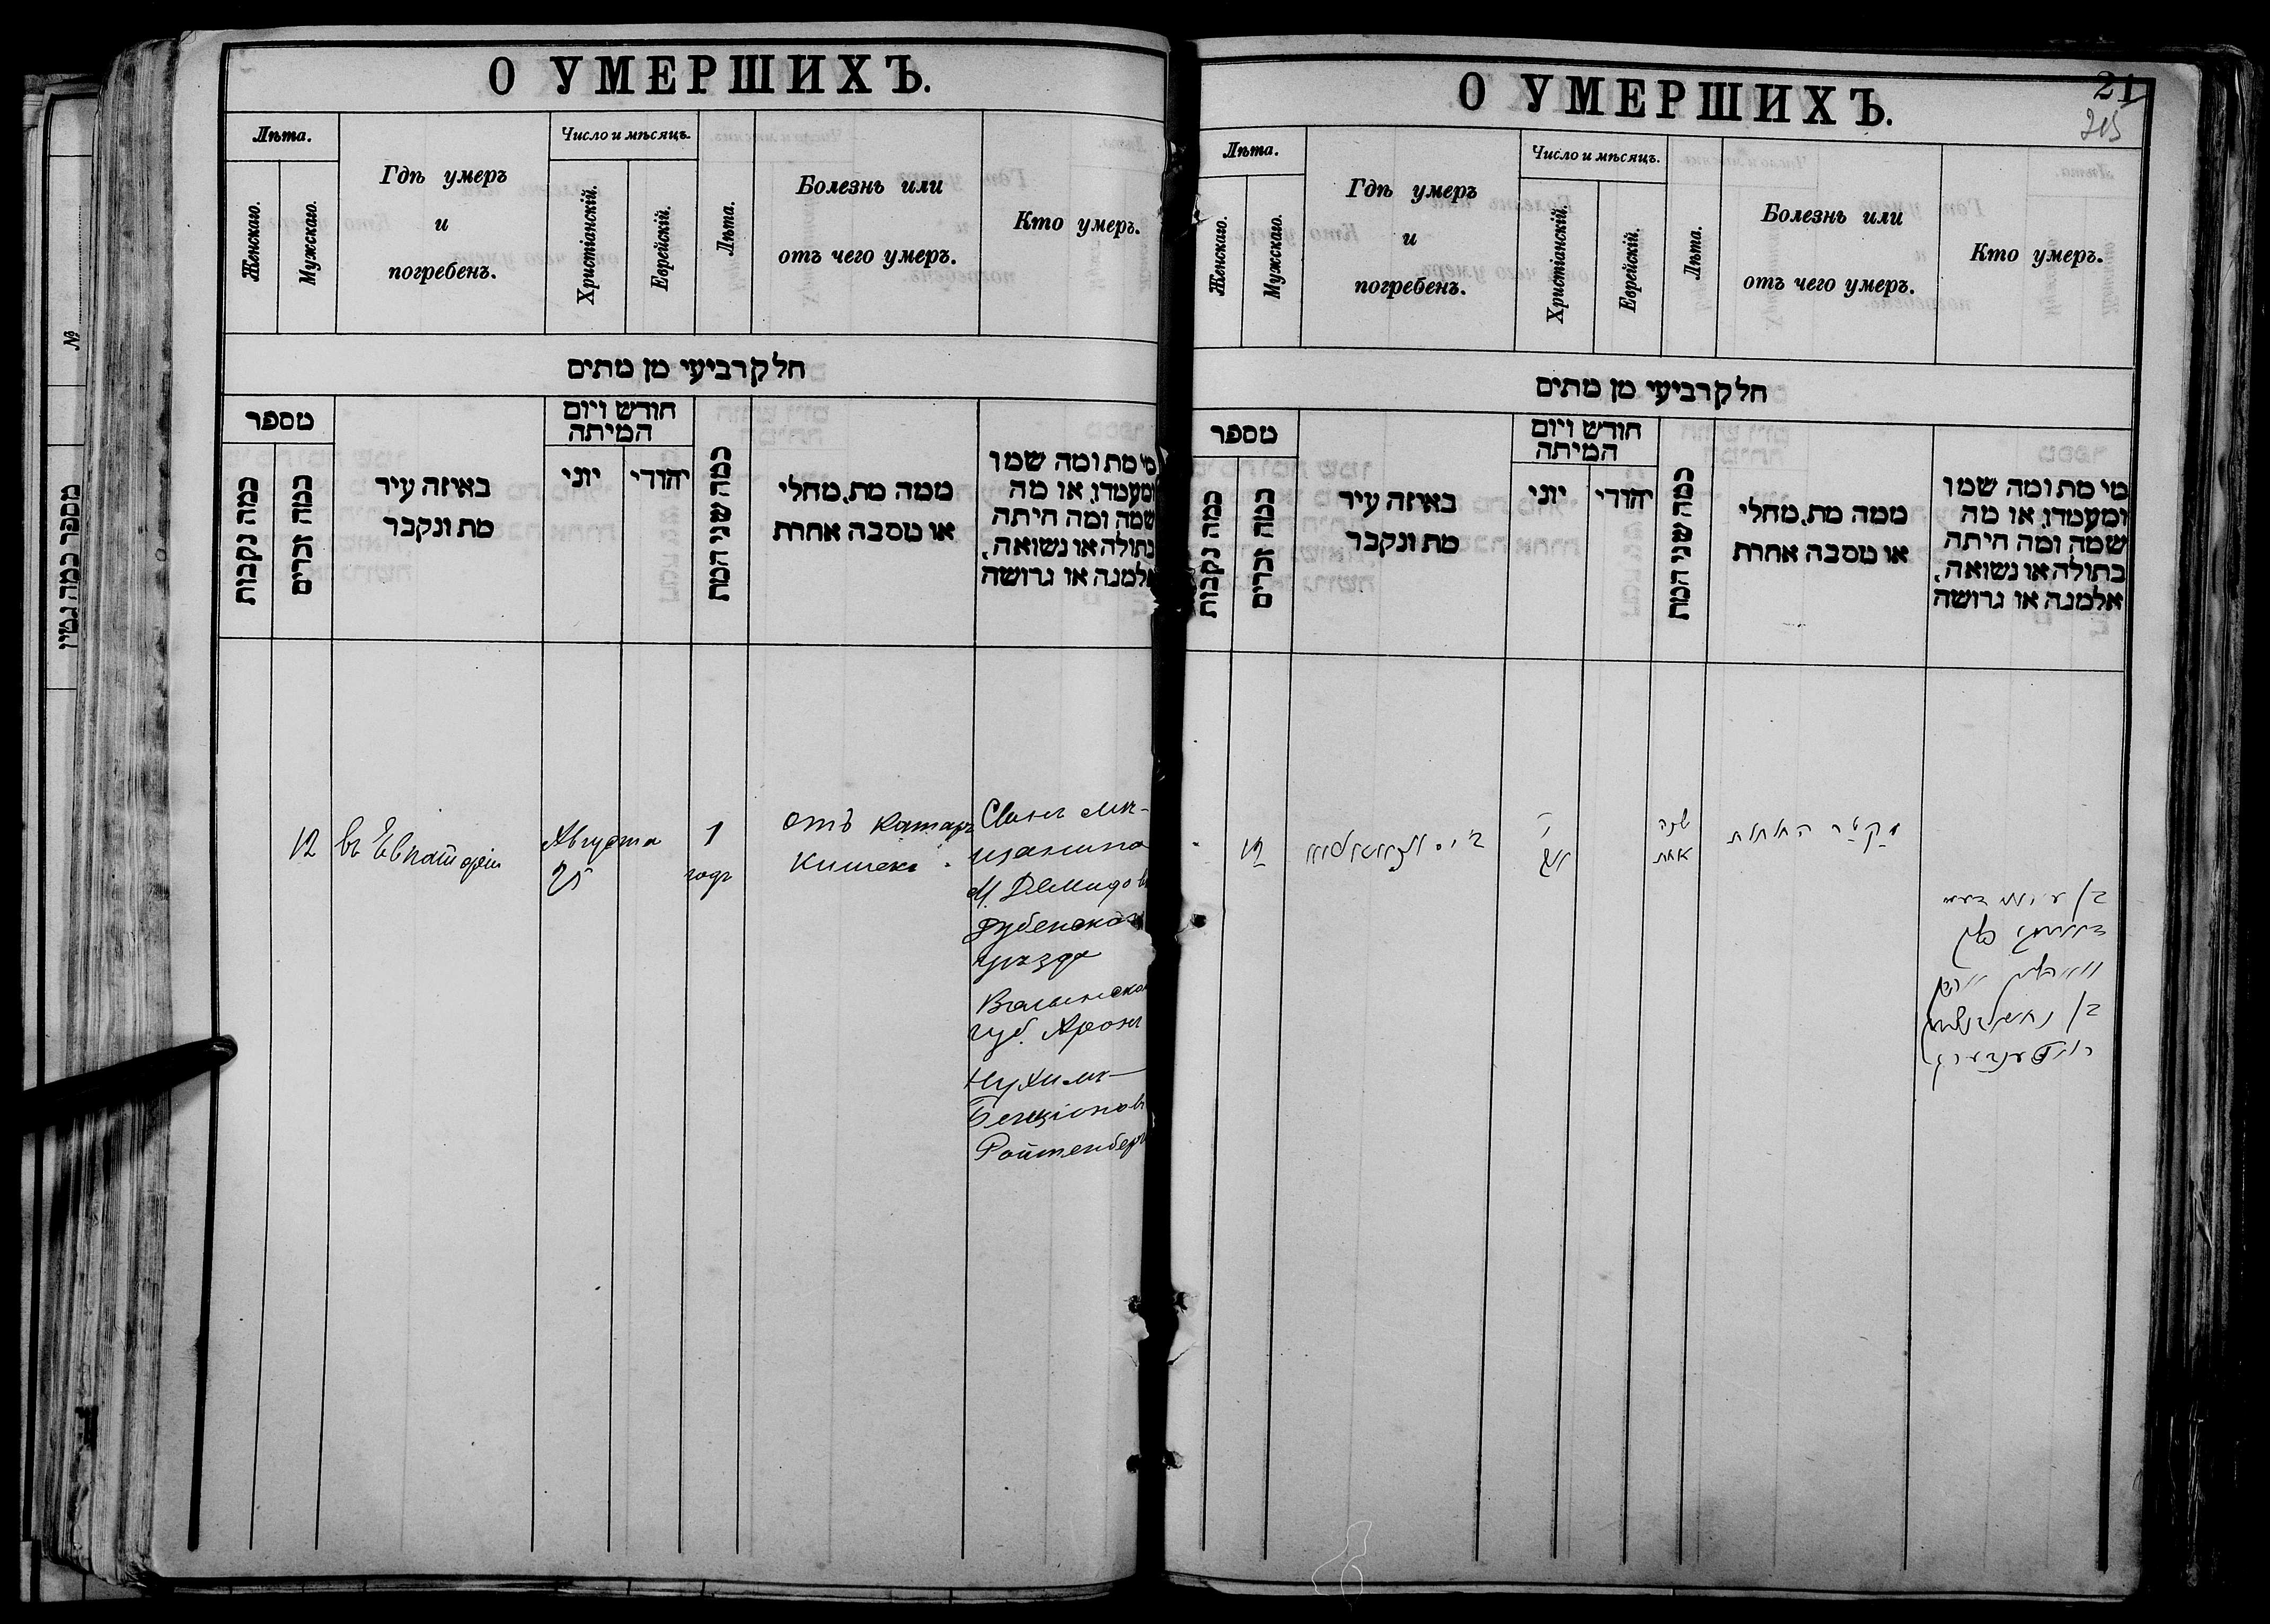 О УМЕРШИХЪ.
Лѣта.
Женскаго.
Мужскаго.
Гдѣ умеръ
и
погребенъ.
Число и мѣсяцъ.
Христіанскій.
Еврейскій.
Лѣта.
Болезнь или
отъ чего умеръ.
Кто умеръ.
חלק רביעי מן מתים
מספר
כמה נקבות
כמה זכרים
באיזה עיר
מת ונקבר
חודש ויום
המיתה
יוני
יהודי
כמה שני המת
ממה מת, מחלי
או מסבה אחרת
מי מת ומה שמו
ומעמדו, או מה
שמה ומה היתה
בתולה או נשואה,
אלמנה או גרושה
12
въ Евпаторіи
Августа
25
1
годъ
отъ катаръ
кишекъ
Сынъ мѣ-
щанина
М. Демидовъ
Дубенскаго
уѣзда
Волынской
губ. Аронъ
Нухимъ
Бенціоновъ
Ройтенбергъ
О УМЕРШИХЪ.
21
Лѣта.
Женскаго.
Мужскаго.
Гдѣ умеръ
и
погребенъ.
Число и мѣсяцъ.
Христіанскій.
Еврейскій.
Лѣта.
Болезнь или
отъ чего умеръ.
Кто умеръ.
חלק רביעי מן מתים
מספר
כמה נקבות
כמה זכרים
באיזה עיר
מת ונקבר
חודש ויום
המיתה
יוני
יהודי
כמה שני המת
ממה מת, מחלי
או מסבה אחרת
מי מת ומה שמו
ומעמדו, או מה
שמה ומה היתה
בתולה או נשואה,
אלמנה או גרושה
12
שנה
אחת
№
מספר כמה גטין